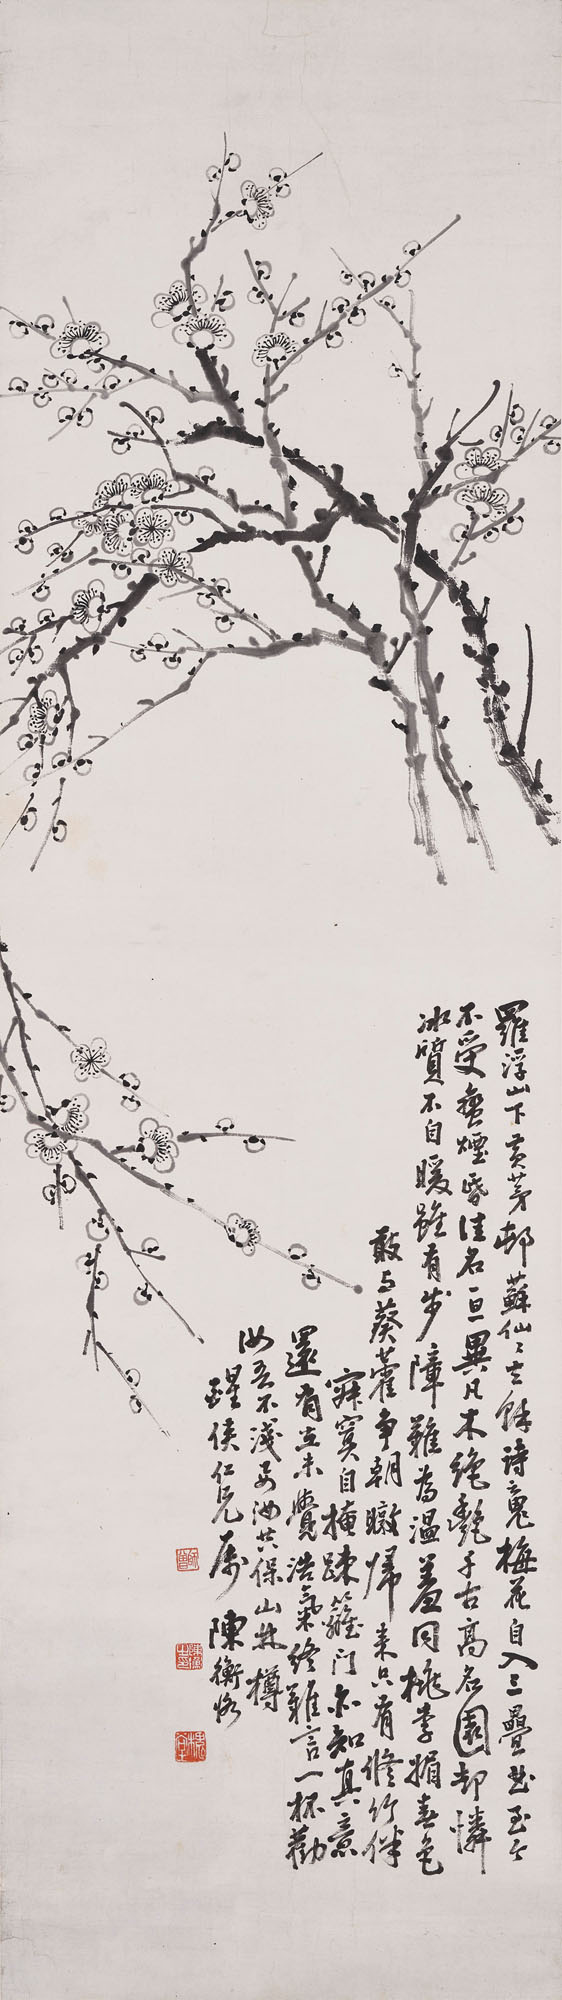 羅浮山下黃茅邨蘇仙〻去餘詩魂梅花自入三疊曲至今
不受蠻煙昏佳名一旦異凡木絕艷千古高名園却憐
冰質不自暖雖有步障難為溫羞同桃李媚春色
敢与葵藿争朝暾歸來只有脩竹伴
寂寞自掩疎籬門亦知真意
還有在未覺浩氣終難言一杯勸
汝吾不淺要汝共保山林樽
醒俠仁兄屬 陳衡恪
師曾
槐堂